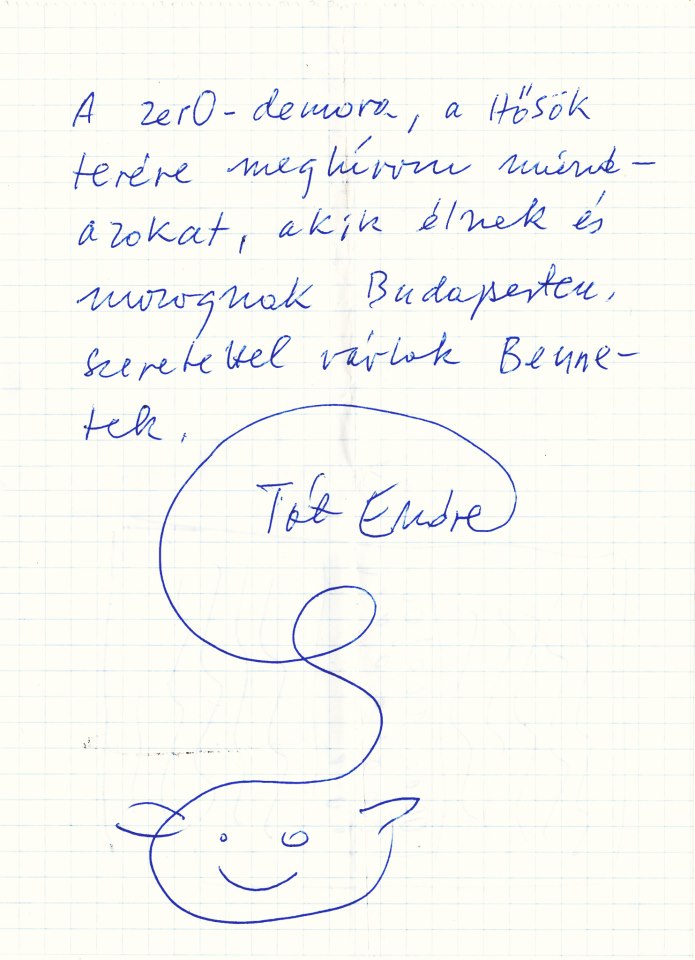 A zer0-demora, a Hősök
terére meghívom mind-
azokat, akik élnek és
mozognak Budapesten,
szeretettel várlak Benne-
tek.
Tót Endre